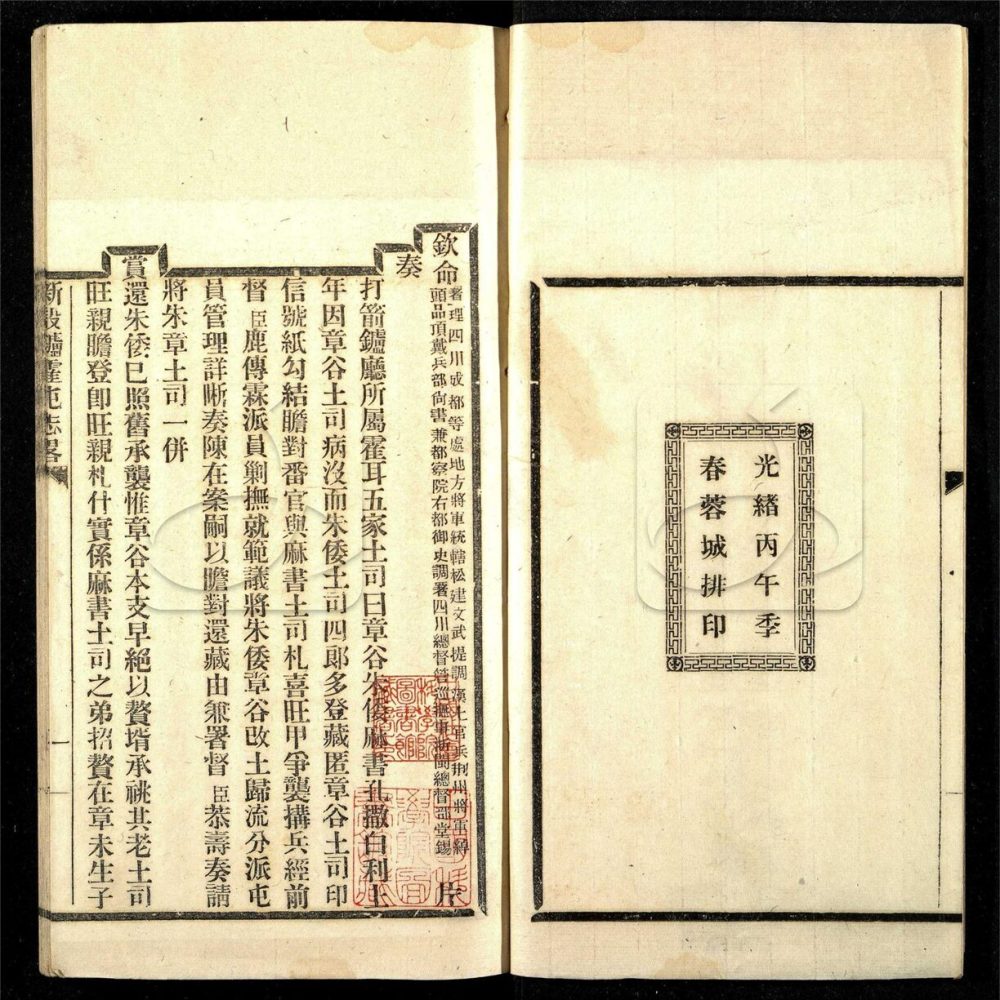 光緒丙午季
春蓉城排印
欽命
署理四川成都等處地方將軍統轄松建文武提調漢土官兵荊州將軍
頭品頂戴兵部尚書兼都察院右都御史調署四川總督管巡撫事閩總督部堂錫
片
奏
打箭鑪廳所屬霍耳五家土司曰章谷朱倭麻書孔撒白利上
年因章谷土司病沒而朱倭土司四郎多登藏匿章谷土司印
信號紙勾結瞻對番官與麻書土司札喜旺甲爭襲搆兵經前
督臣鹿傳霖派員剿撫就範議將朱倭章谷改土歸流分派屯
員管理詳晰奏陳在案嗣以瞻對還藏由兼署督臣恭壽奏請
將朱章土司一併
賞還朱倭已照舊承襲惟章谷本支早絕以贅壻承祧其老土司
旺親瞻登卽旺親札什實係麻書土司之弟招贅在章未生子
新設鑪霍屯志畧
一